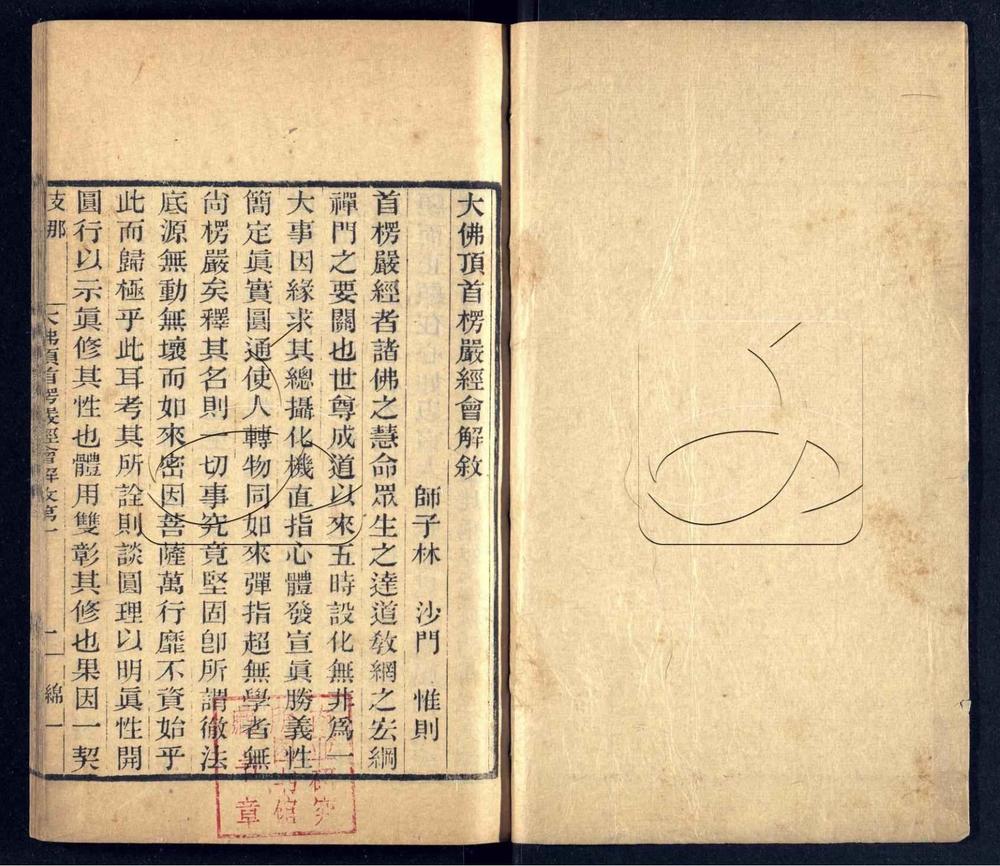 大佛頂首楞嚴經會解敘
師子林 沙門 惟則
首楞嚴經者諸佛之慧命眾生之達道教網之宏綱
禪門之要關也世尊成道以來五時設化無非爲一
大事因緣求其總攝化機直指心體發宣眞勝義性
簡定眞實圓通使人轉物同如來彈指超無學者無
尚楞嚴矣釋其名則一切事究竟堅固卽所謂徹法
底源無動無壞而如來密因菩薩萬行靡不資始乎
此而歸極乎此耳考其所詮則談圓理以明眞性開
圓行以示眞修其性也體用雙彰其修也果因一契
支那 大佛頂首楞嚴經會解敘第一 一 綿一